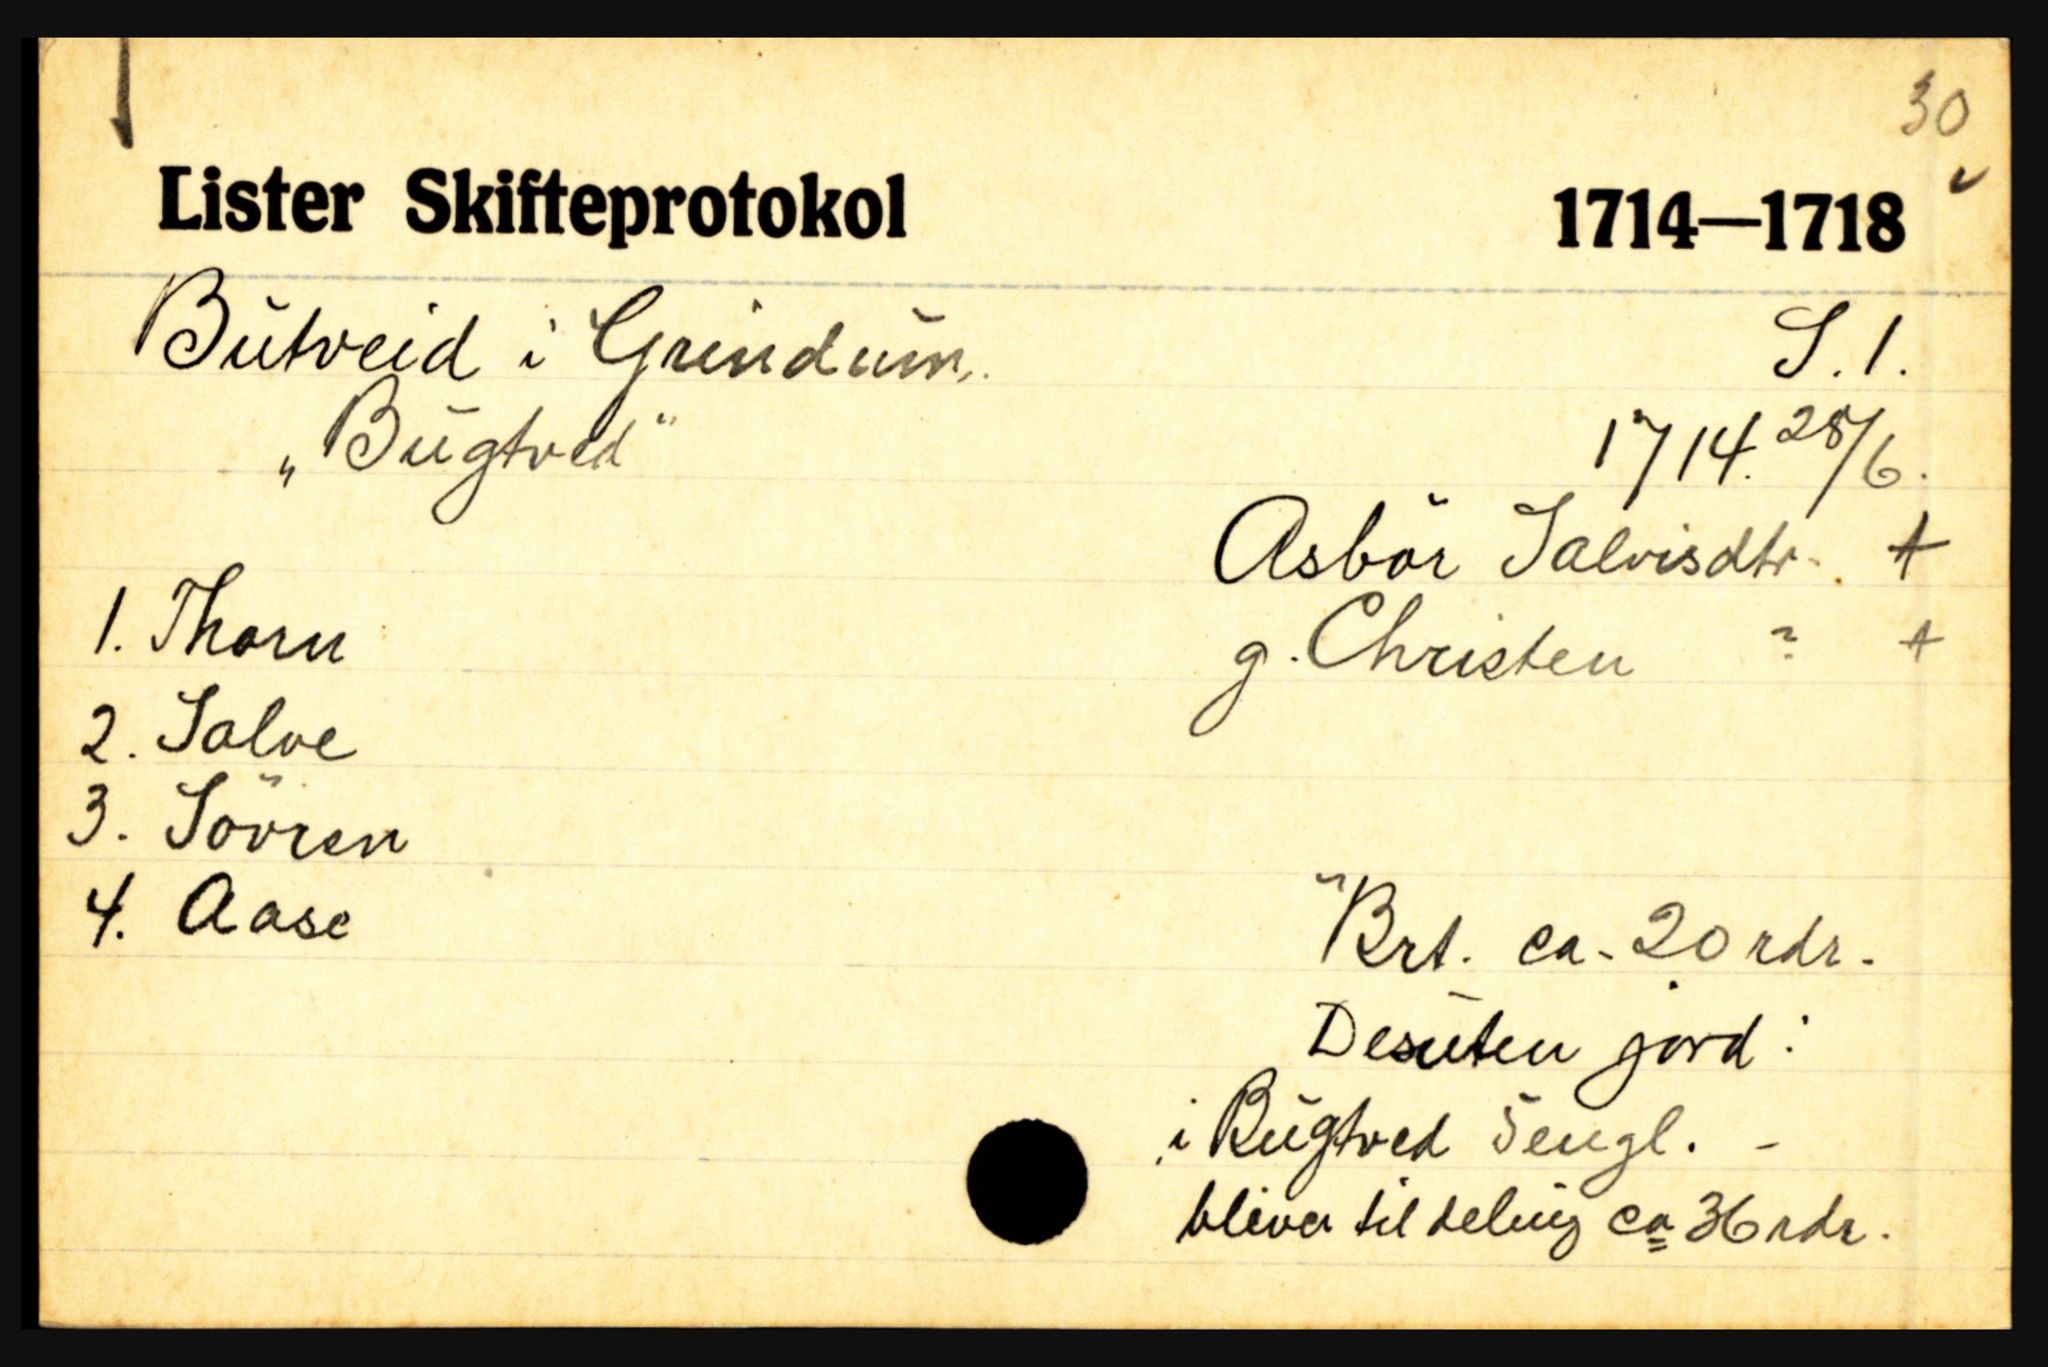 30
Lister Skifteprotokol 1714—1718
Butveid i Grindum. S. 1.
„Bugtved" 1714. 28/6.
Asbör Salvisdtr. +
1. Thorn g. Christen ? +
2. Salve
3. Sövren
4. Aase
Brt. ca. 20 rdr.
Desuten jord:
i Bugtved 5 engl. -
bliver til deling ca 36 rdr.